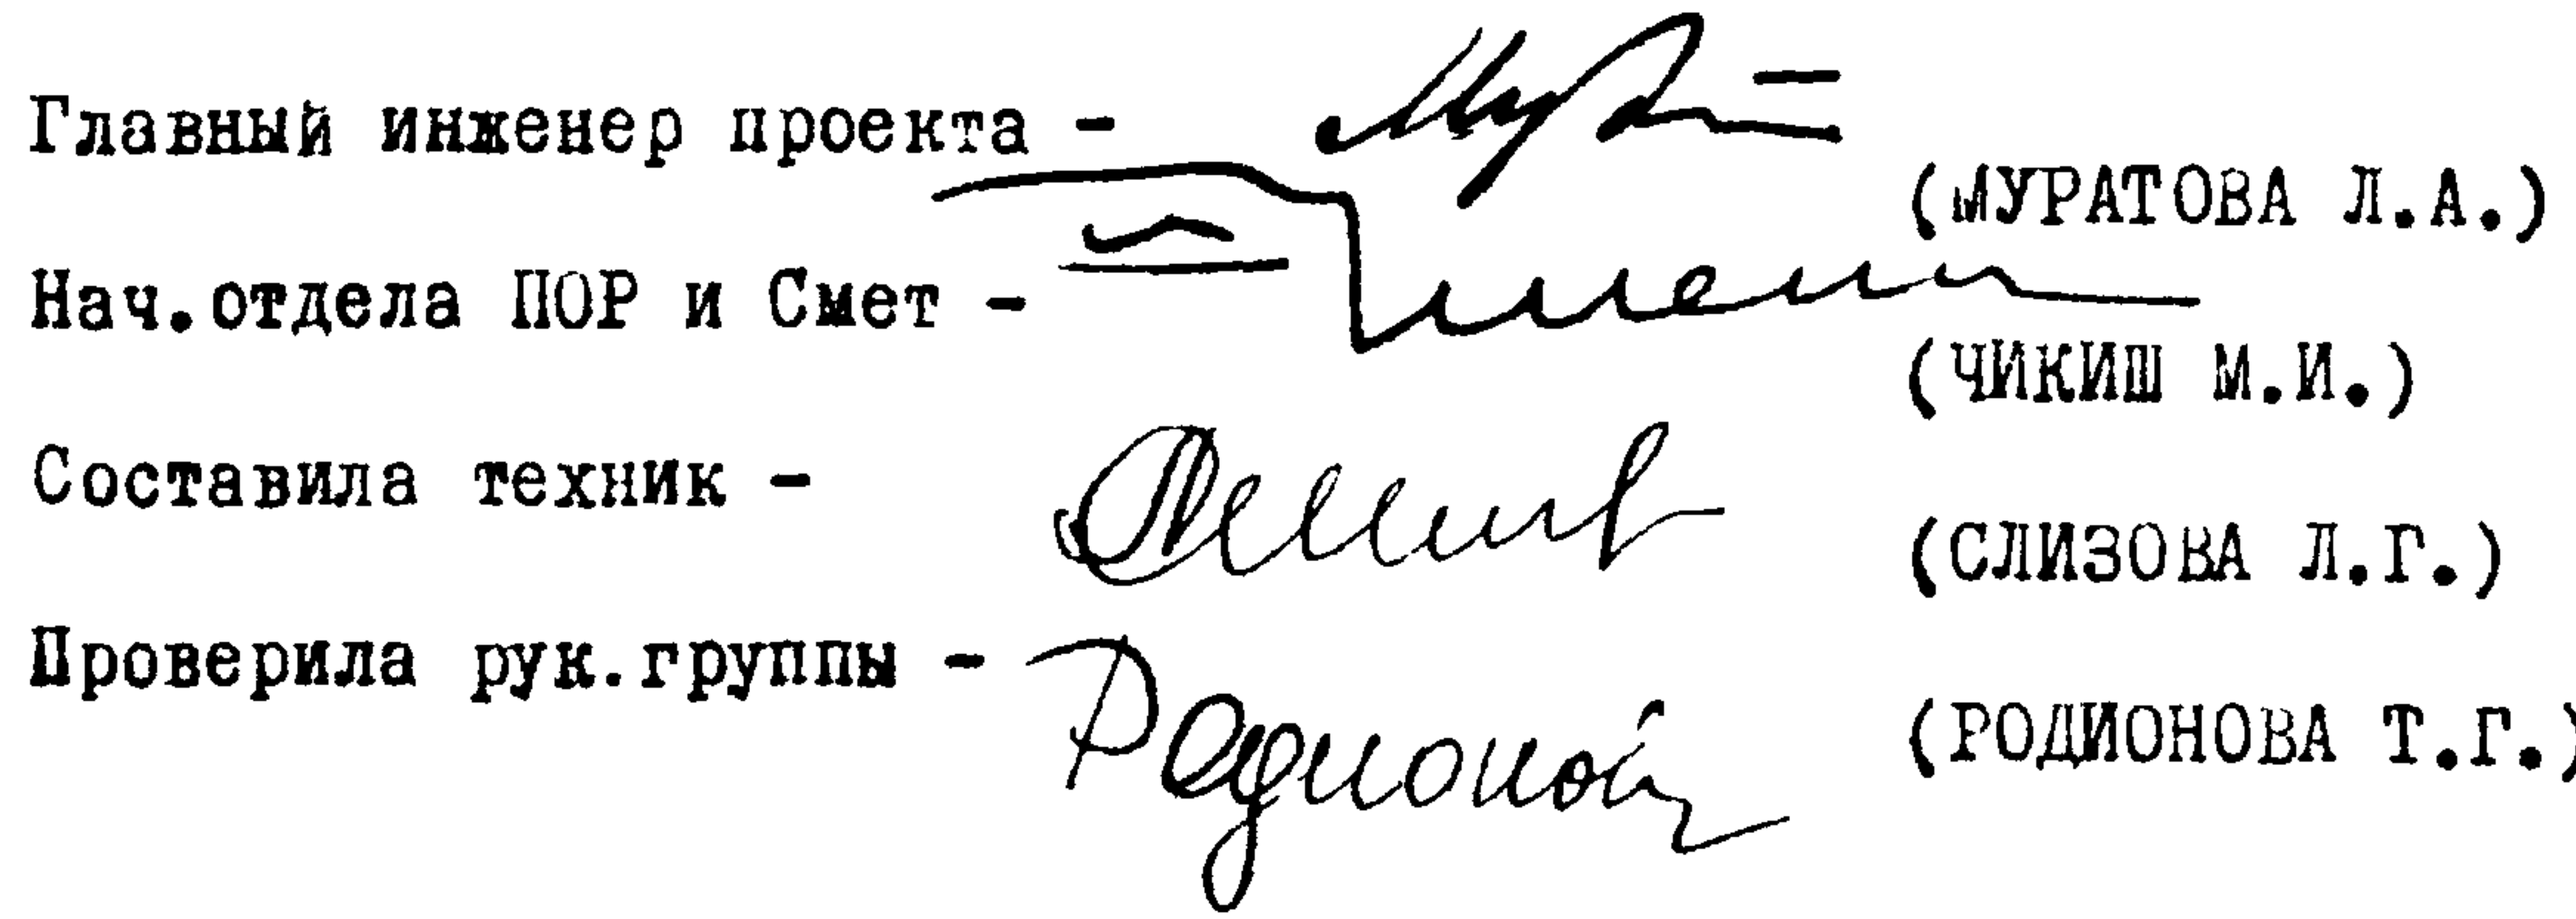 Главный инженер проекта -
(МУРАТОВА Л.А.)
Нач.отдела ПОР и Смет -
(ЧИКИШ М.И.)
Составила техник -
(СЛИЗОВА Л.Г.)
Проверила рук.группы -
(РОДИОНОВА Т.Г.)